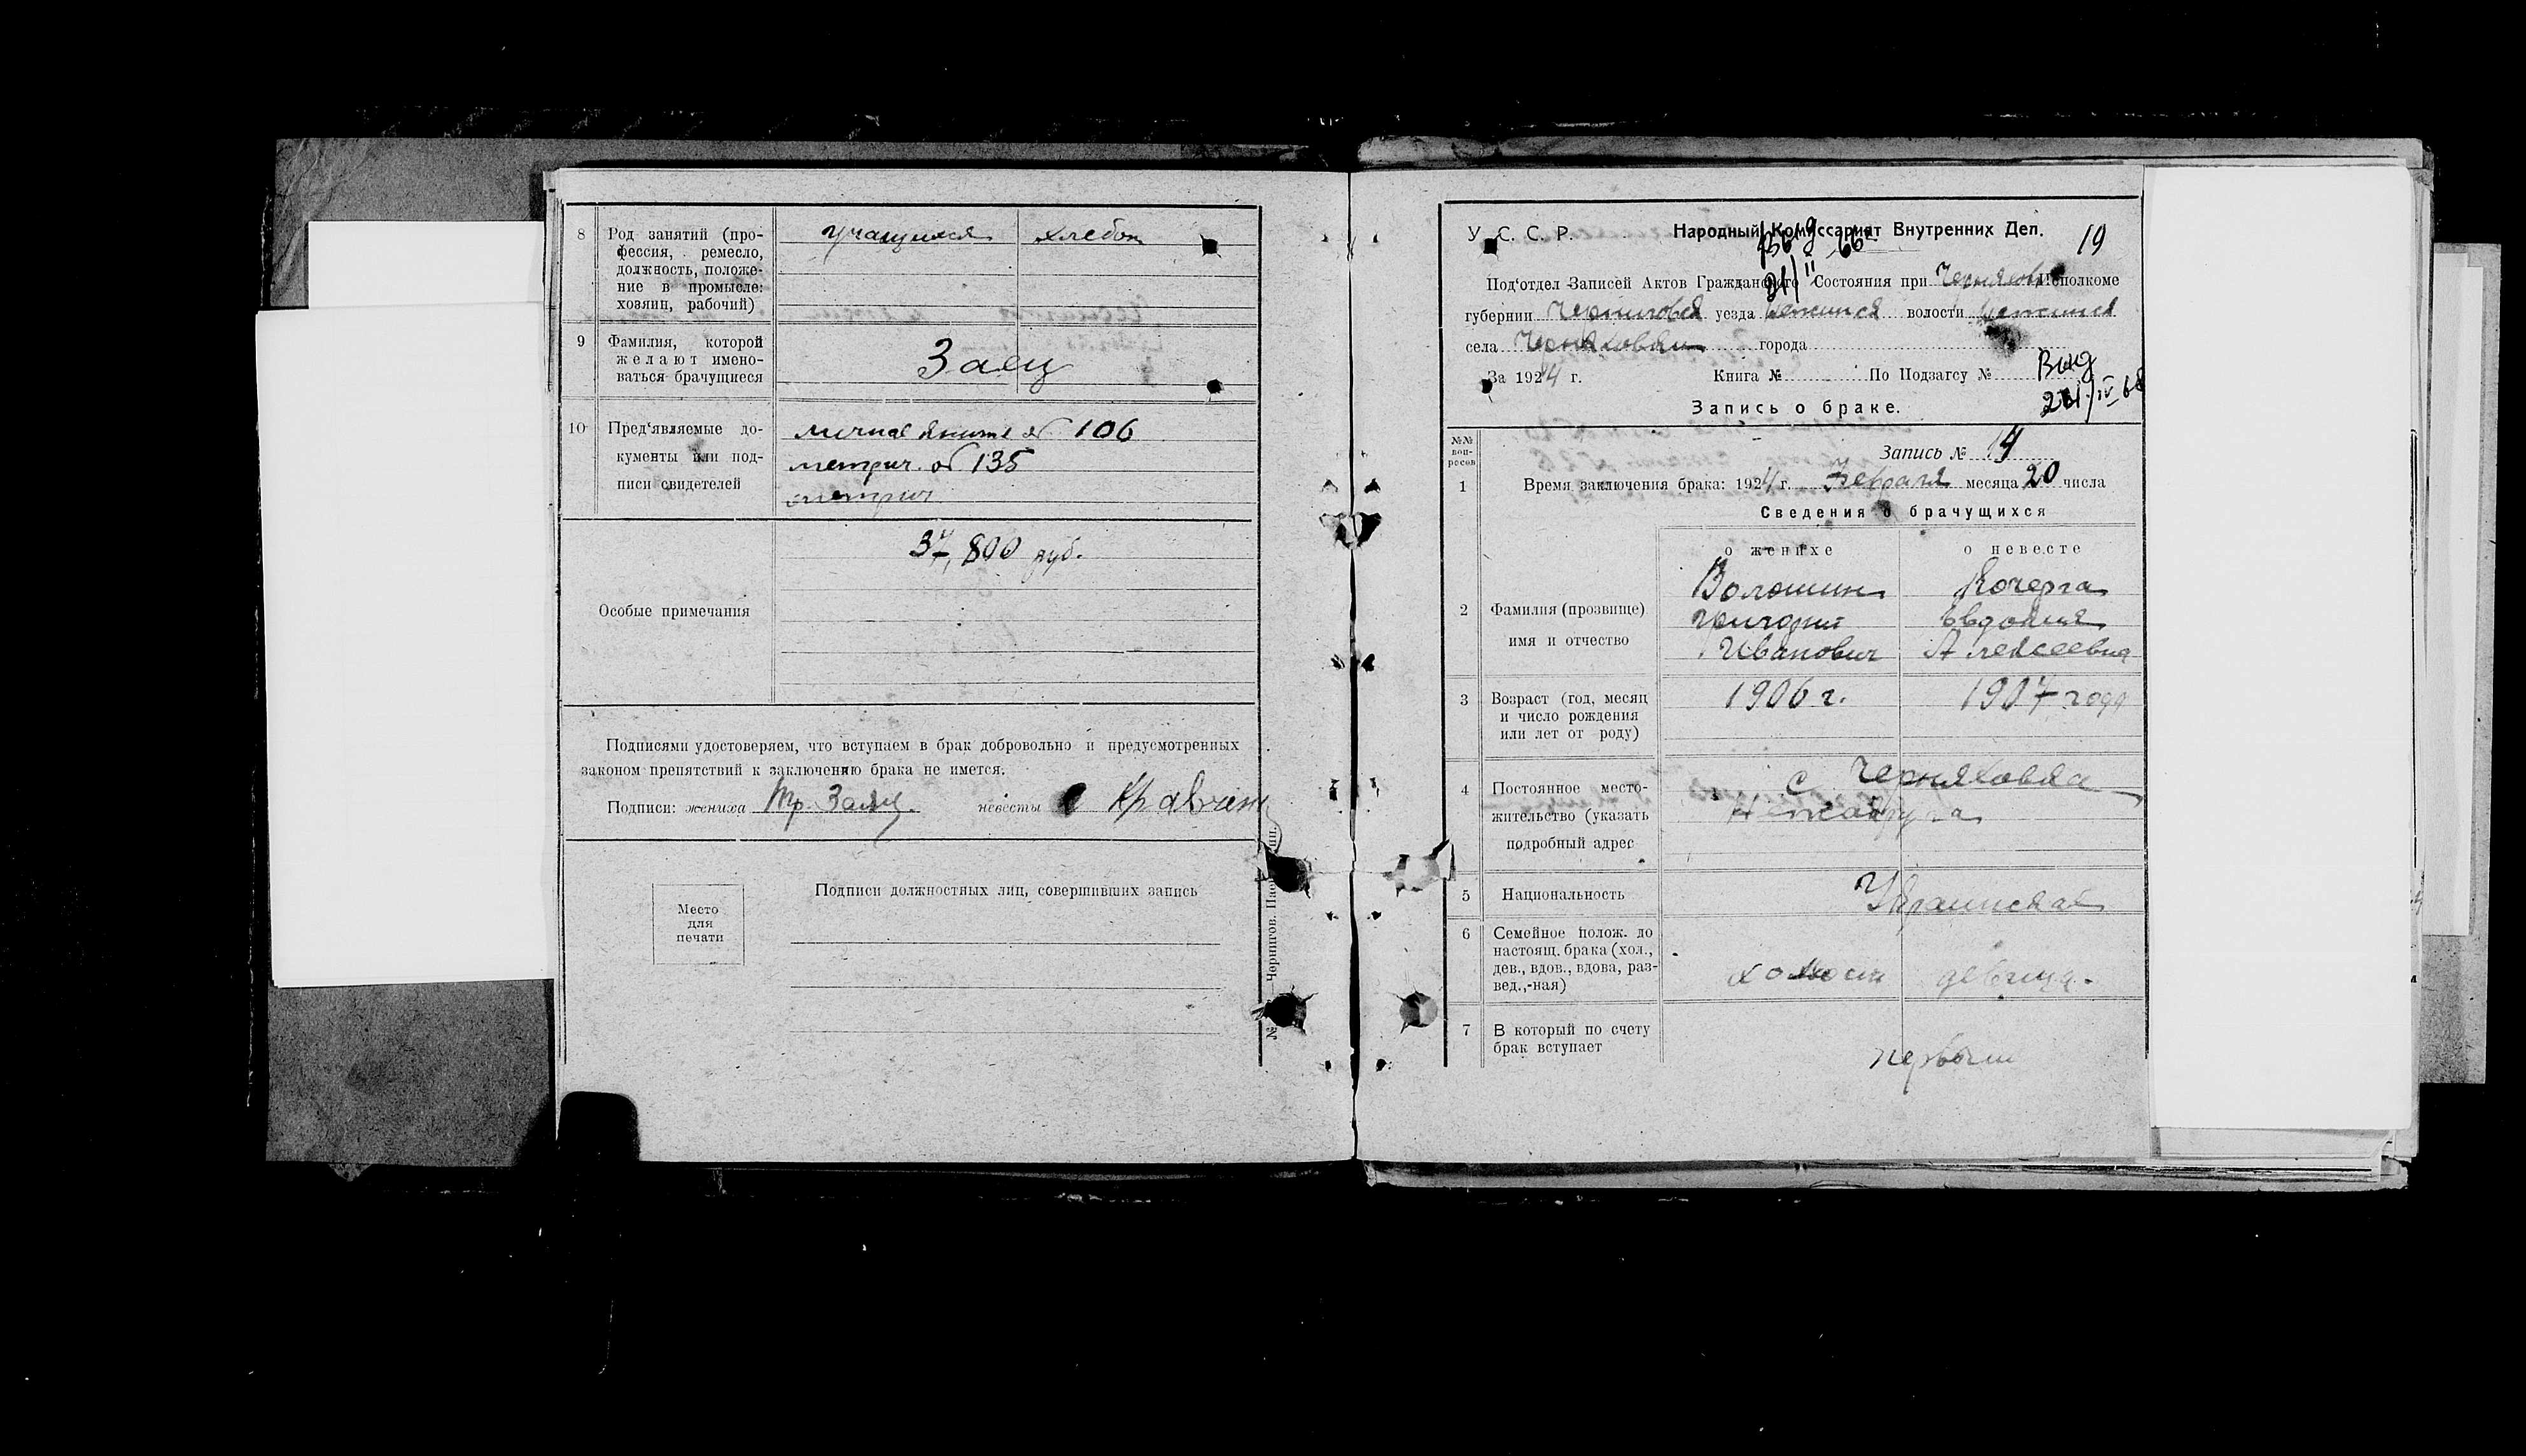 8 Род занятий (про-
фессия, ремесло,
должность, положе-
ние в промысле:
хозяин, рабочий)
учащийся хлебоп
9 Фамилия, которой
желают имено-
ваться брачущиеся
Заец
10 Пред‘являемые до-
кументы или под-
писи свидетелей
106
метрич. 135
метрич
Особые примечания
800 руб.
Подписями удостоверяем, что вступаем в брак добровольно и предусмотренных
законом препятствий к заключению брака не имется.
Подписи: жениха Заяц. невесты
Место
для
печати
Подписи должностных лиц, совершивших запись
У. С. С. Р. Народный Комиссариат Внутренних Дел. 19
Под‘отдел Записей Актов Гражданского Состояния при Исполкоме
губернии уезда волости
села города
За 1924 г. Книга № По Подзагсу №
Запись о браке.
№№
воп-
росов
Запись № 14
1 Время заключения брака: 1924 г. Февраля месяца 20 числа
Сведения о брачущихся
о женихе о невесте
2 Фамилия (прозвище)
имя и отчество
Волошин Кочерга
Григорий Евдокия
Иванович Алексеевна
3 Возраст (год, месяц
и число рождения
или лет от роду)
1906 г. 1907 года
4 Постоянное место-
жительство (указать
подробный адрес
с. Черняховка
5 Национальность
Украинская
6 Семейное полож. до
настоящ. брака (хол.,
дев., вдов., вдова, раз-
вед.,-ная)
холост девица.
7 В который по счету
брак вступает
первый